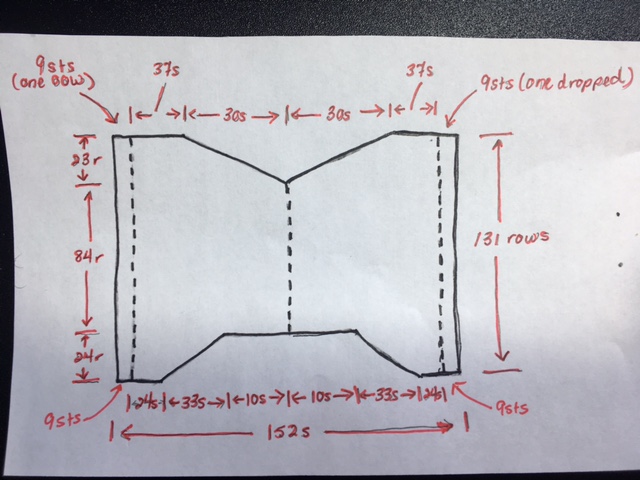 9sts
(one OOW)
37s
37s
9sts (one dropped)
30s
30s
23r
84r
24r
131 rows
24s
33s
10s
10s
33s
24s
9sts
9sts
152s